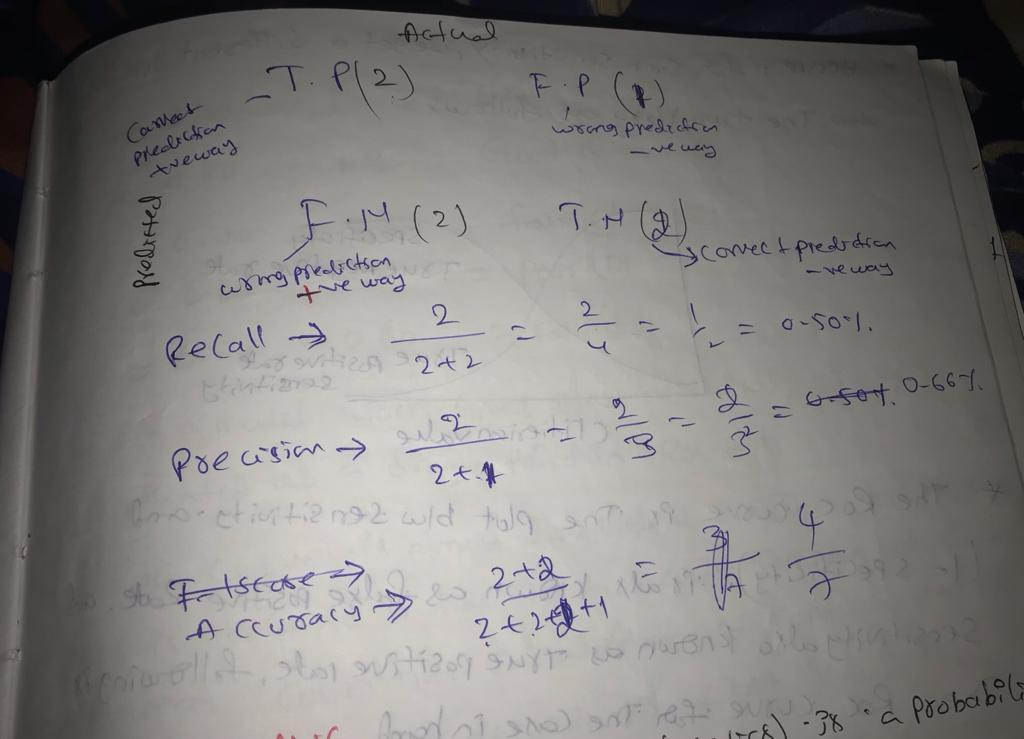 Actual
T.P(2) F.P (1)
Correct
prediction
+ve way
wrong prediction
-ve way
Predicted
F.N (2) T.N (2)
wrong prediction
+ve way
correct prediction
-ve way
Recall → 2/2+2 = 2/4 = 1/2 = 0.50%.
Precision → 2/2+1 = 2/3 = 2/3 = 0.50%. 0.66%.
F-1score →
Accuracy → 2+2/2+2+2+1 = 3/7 4/7
a probabili